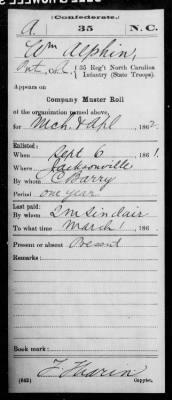 (Confederate.)
A. 35 N.C.
Wm Aepkin,
Pvt, Co. A. 35 Reg't North Carolina Infantry (State Troops).
Appears on
Company Muster Roll
of the organization named above,
for Mch & Apl, 1862.
Enlisted:
When Sept 6, 1861.
Where Jacksonville
By whom C Barry
Period one year
Last paid:
By whom QM Sinclair
To what time March 1, 186
Present or absent Present
Remarks:
Book mark:
(642) Copyist.